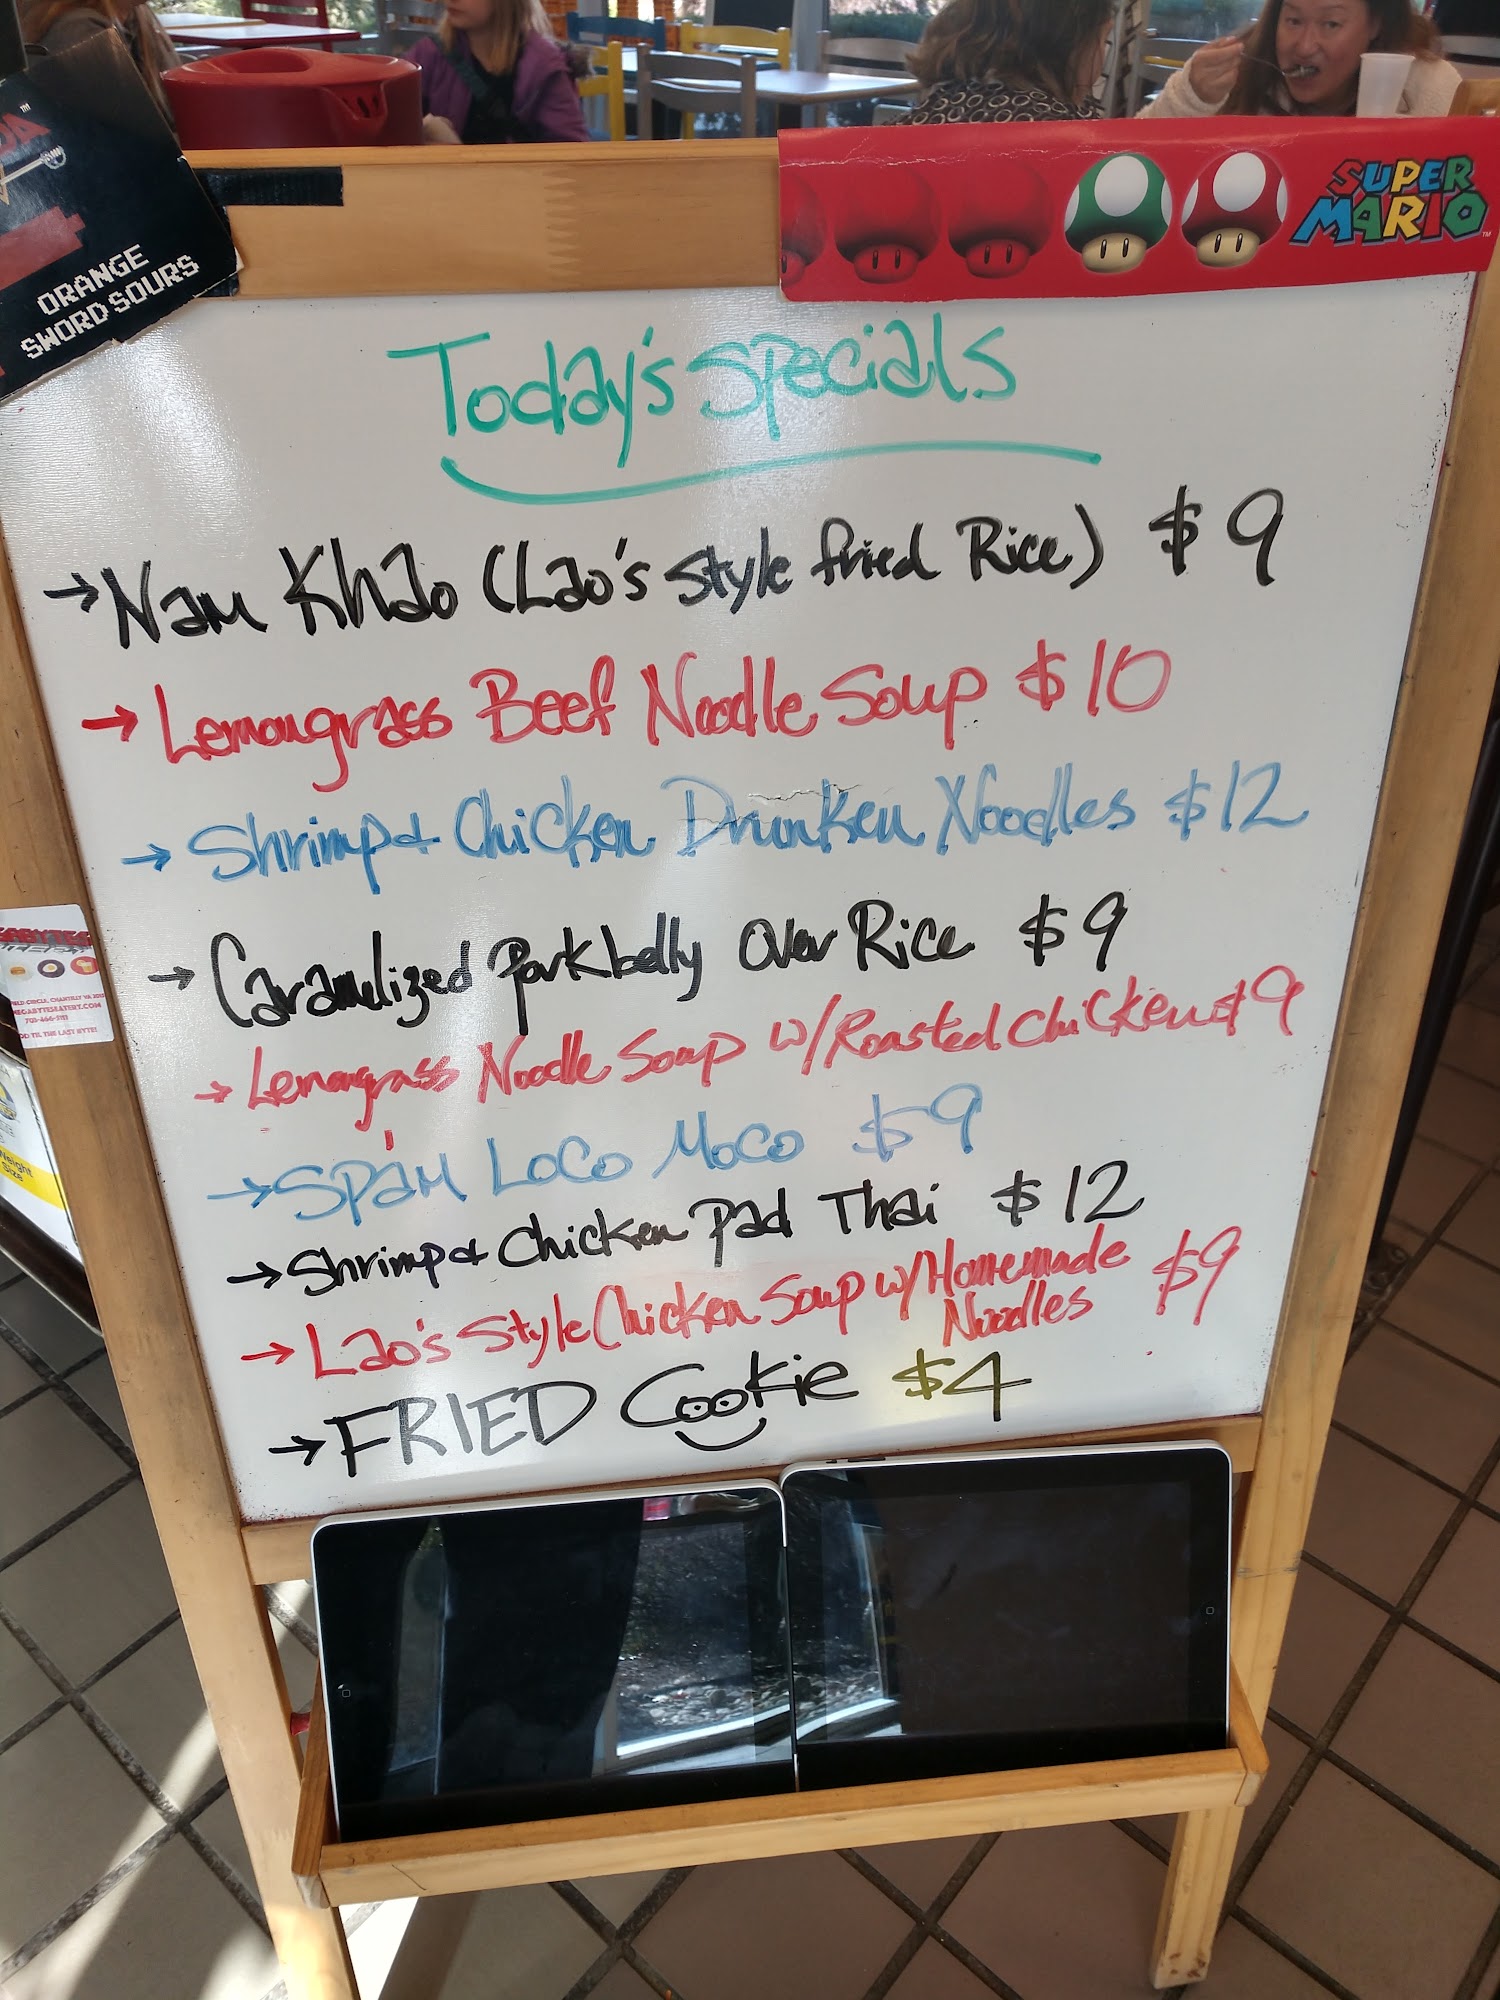 SUPER
MARIO™
ORANGE
SWORD SOURS
Today's Specials
→ Nam Khao (Lao's Style fried Rice) $9
→ Lemongrass Beef Noodle Soup $10
→ Shrimp & Chicken Drunken Noodles $12
→ Caramelized Porkbelly Over Rice $9
→ Lemongrass Noodle Soup w/Roasted Chicken $9
→ SPAM LOCO MOCO $9
→ Shrimp & Chicken Pad Thai $12
→ Lao's Style Chicken Soup w/Homemade $9
Noodles
→ FRIED Cookie $4
CIRCLE, CHANTILLY VA
EGABYTESEATERY.COM
TIL THE LAST BYTE!
Weight
Size